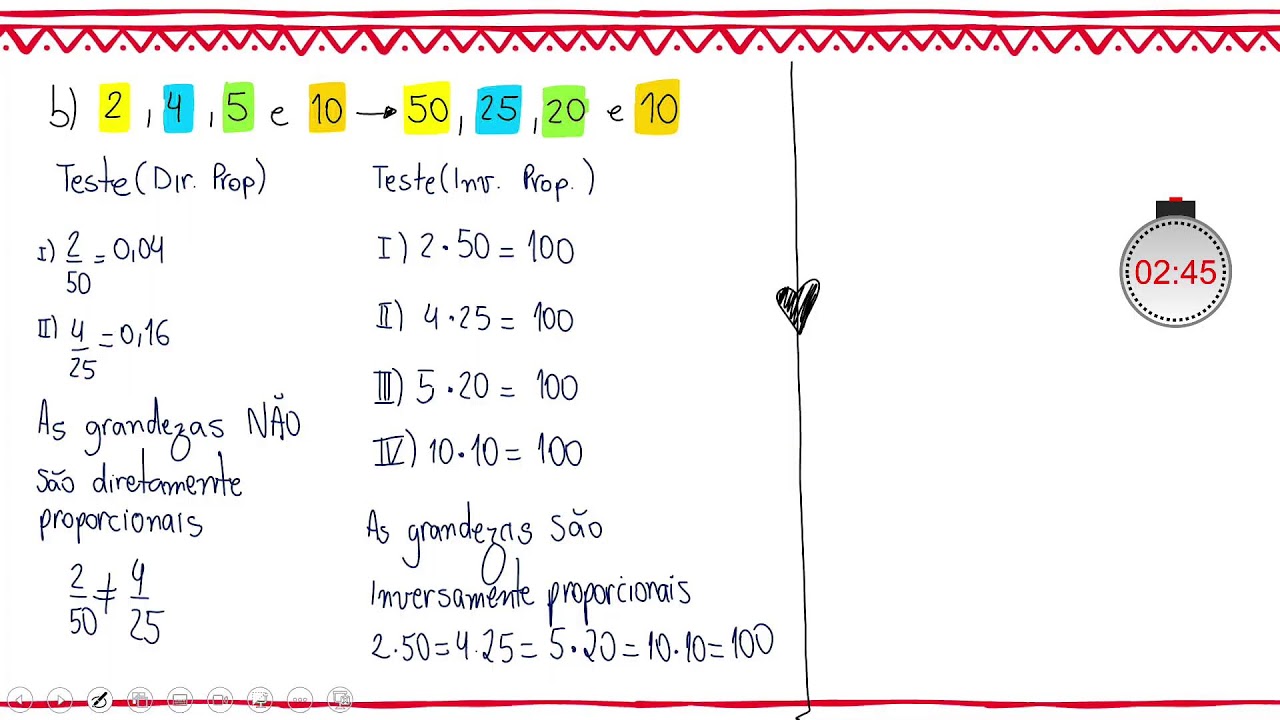 b) 2, 4, 5 e 10 → 50, 25, 20 e 10
Teste (Dir. Prop)
I) 2/50 = 0,04
II) 4/25 = 0,16
As grandezas NÃO
são diretamente
proporcionais
2/50 ≠ 4/25
Teste (Inv. Prop.)
I) 2·50 = 100
II) 4·25 = 100
III) 5·20 = 100
IV) 10·10 = 100
As grandezas são
Inversamente proporcionais
2·50 = 4·25 = 5·20 = 10·10 = 100
02:45